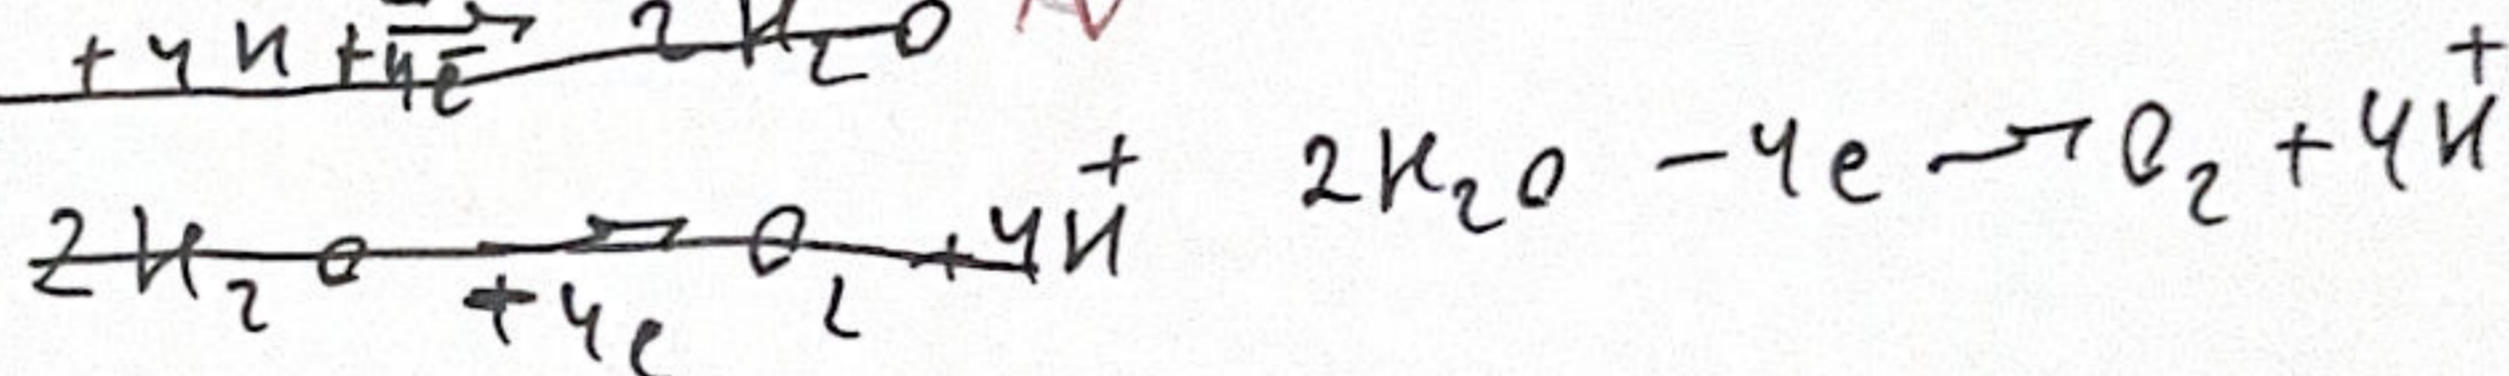 +4H + 4e⁻ → 2H₂O
2H₂O → +4e O₂ + 4H⁺ 2H₂O − 4e → O₂ + 4H⁺